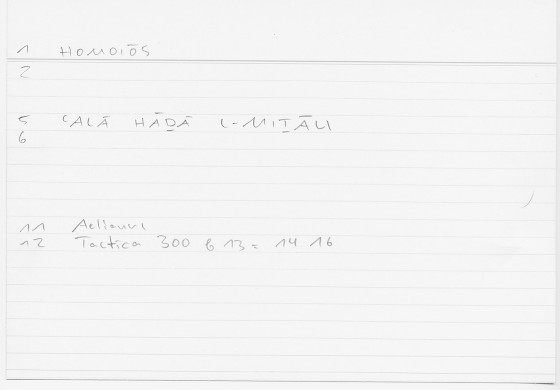 1 HOMOIŌS
2
5 ʿALĀ HĀḎĀ L-MIṮĀLI
6
11 Aelianus
12 Tactica 300 b 13 = 14 16